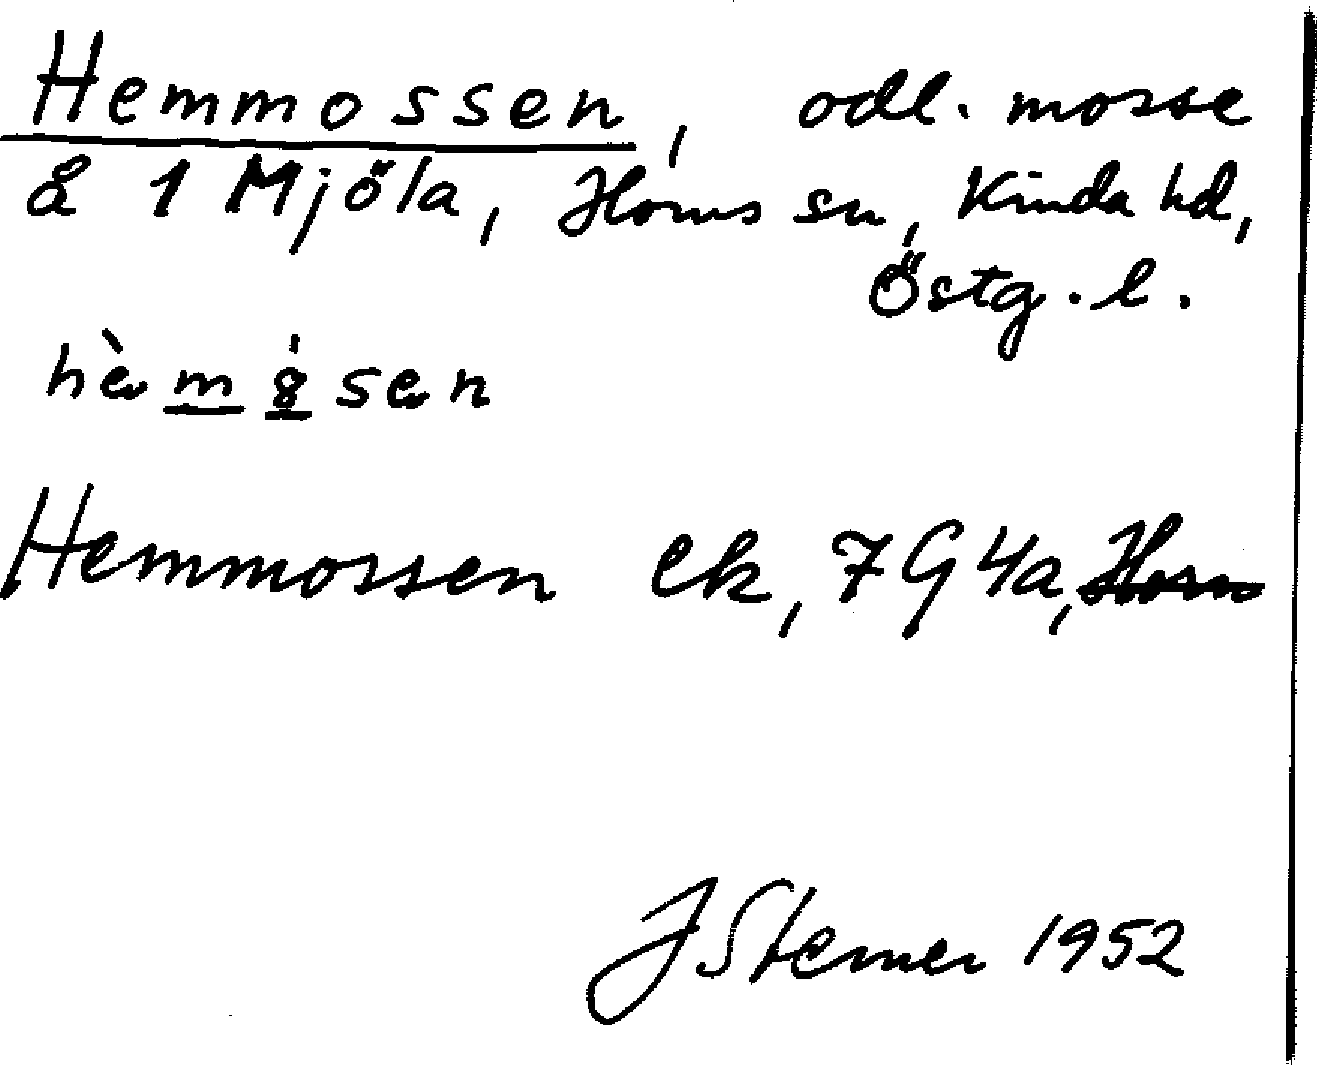 Hemmossen, odl. mosse
å 1 Mjöla, Horns sn, Kinda hd,
Östg. l.
Hemmossen ek, 7G4a,
J Sterner 1952